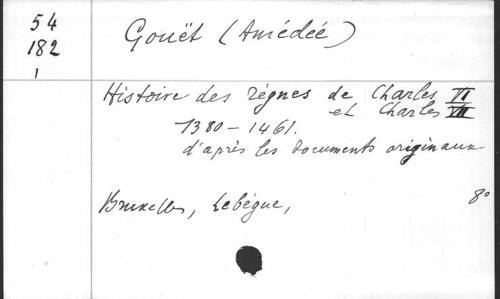 54
182
1
Gouët (Amédée)
Histoire des règnes de Charles VI
et Charles VII
1380-1461.
d'après les documents originaux
Bruxelles, Lebègue,
8°